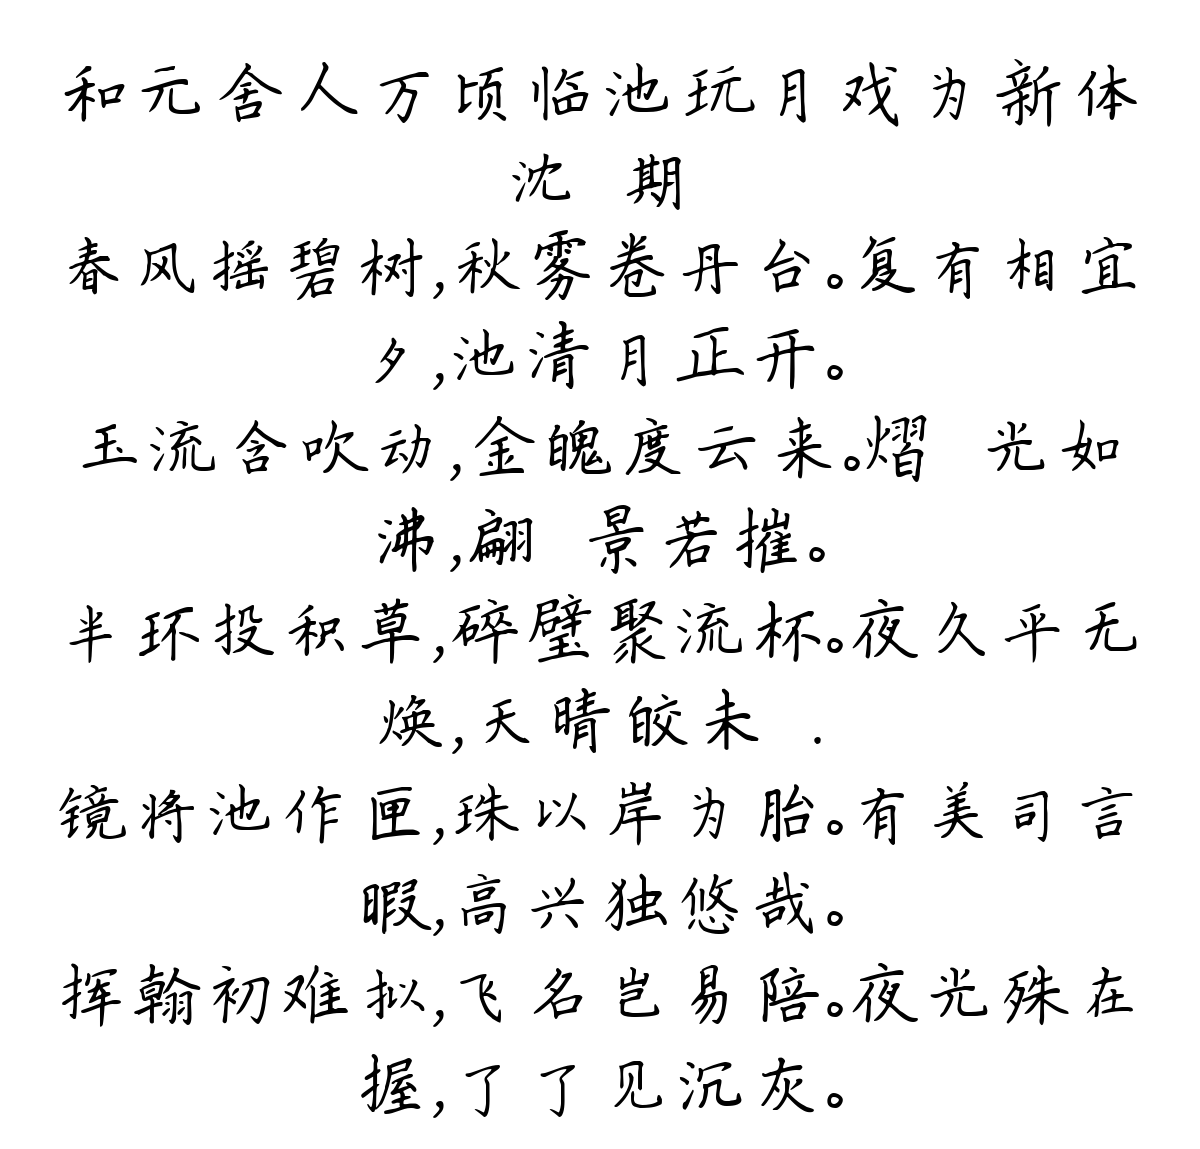 和元舍人万顷临池玩月戏为新体
沈 期
春风摇碧树,秋雾卷丹台。复有相宜
夕,池清月正开。
玉流含吹动,金魄度云来。熠 光如
沸,翩 景若摧。
半环投积草,碎璧聚流杯。夜久平无
焕,天晴皎未 .
镜将池作匣,珠以岸为胎。有美司言
暇,高兴独悠哉。
挥翰初难拟,飞名岂易陪。夜光殊在
握,了了见沉灰。